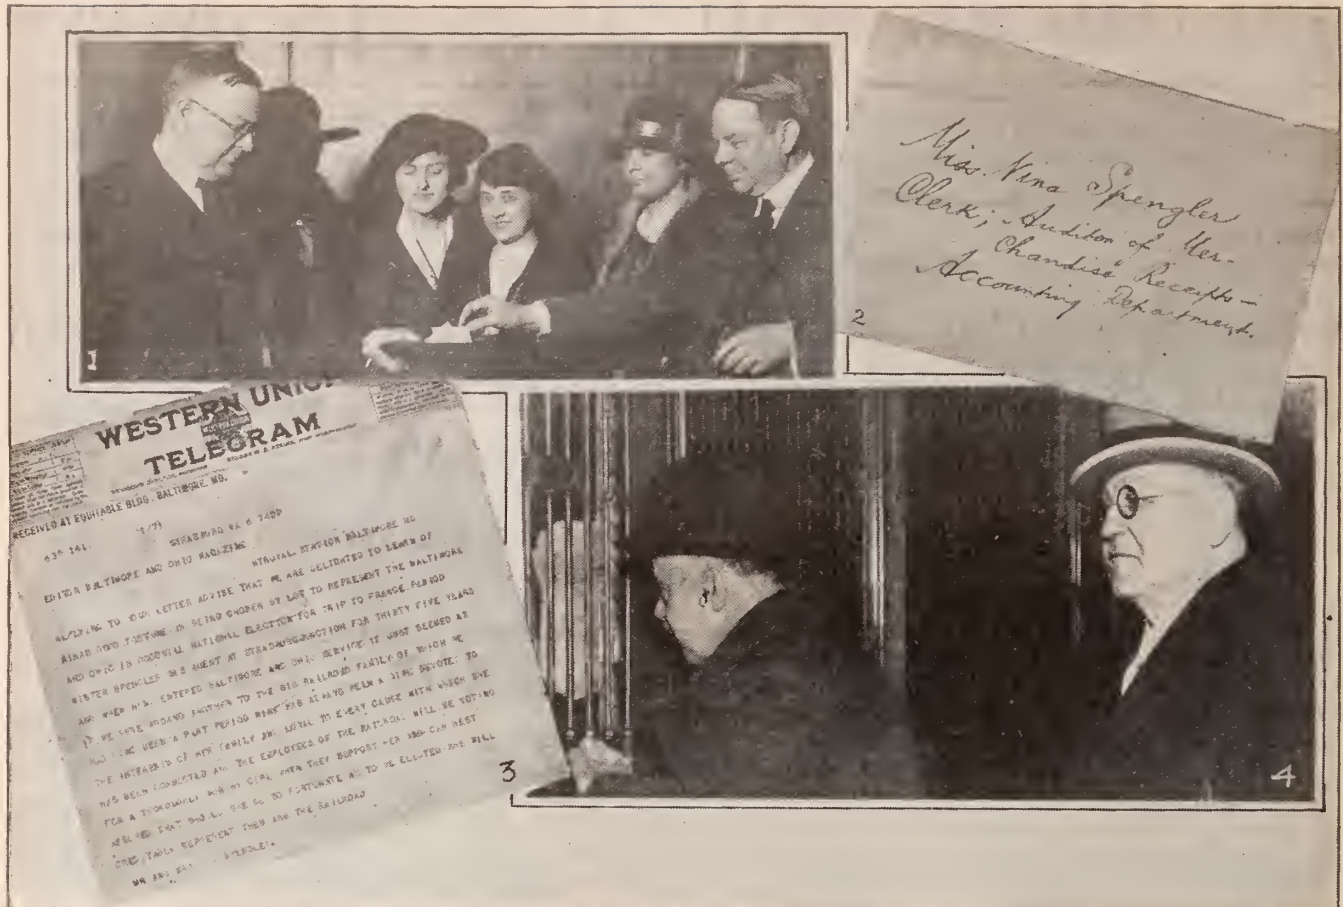 1
Miss. Nina Spengler
Clerk; Auditor of Mer-
Chandise Receipts —
Accounting Department.
2
WESTERN UNION
TELEGRAM
RECEIVED AT EQUITABLE BLDG. BALTIMORE, MD.
STRASBURG VA 6
EDITOR BALTIMORE AND OHIO MAGAZINE
MTROYAL STATION BALTIMORE MD
REPLYING TO YOUR LETTER ADVISE THAT WE ARE DELIGHTED TO LEARN OF
NINAS GOOD FORTUNE IN BEING CHOSEN BY LOT TO REPRESENT THE BALTIMORE
AND OHIO IN GOODWILL NATIONAL ELECTION FOR TRIP TO FRANCE PERIOD
MISTER SPENGLER WAS AGENT AT STRASBURGJUNCTION FOR THIRTY FIVE YEARS
AND WHEN NINA ENTERED BALTIMORE AND OHIO SERVICE IT JUST SEEMED AS
IF WE GAVE ANOTHER TO THE BIG RAILROAD FAMILY OF WHICH WE
HAD LONG BEEN A PART PERIOD NINA HAS ALWAYS BEEN A GIRL DEVOTED TO
THE INTERESTS OF HER FAMILY AND LOYAL TO EVERY CAUSE WITH WHICH SHE
HAS BEEN CONNECTED AND THE EMPLOYEES OF THE RAILROAD WILL BE VOTING
FOR A THOROUGHLY GIRL WHEN THEY SUPPORT HER AND CAN REST
ASSURED THAT SHOULD SHE BE SO FORTUNATE AS TO BE ELECTED SHE WILL
CREDITABLY REPRESENT THEM AND THE RAILROAD
MR AND SPENGLER.
3
4